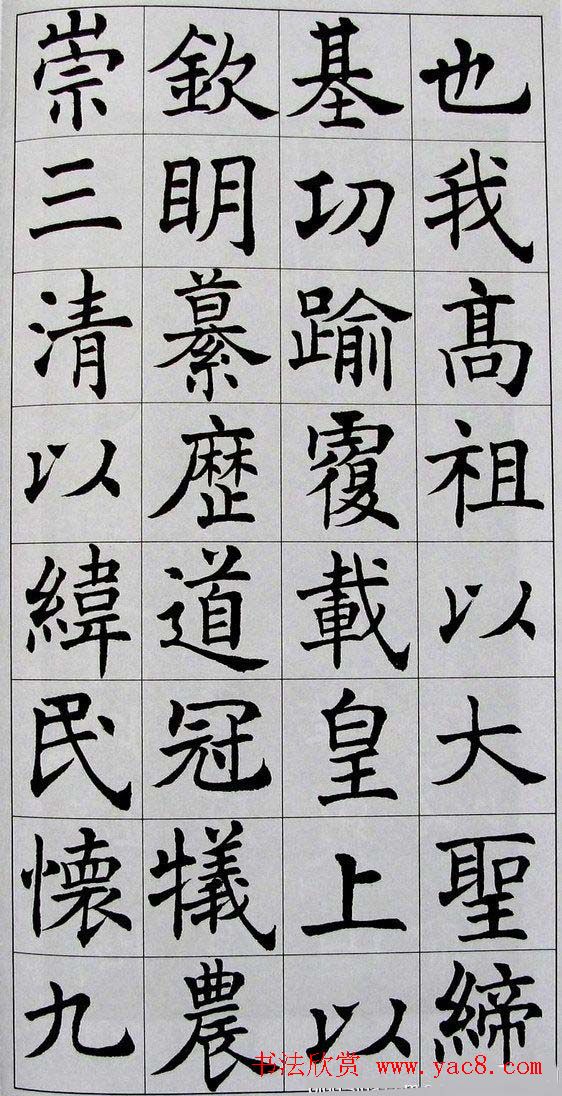 也我髙祖以大聖締
基功踰覆載皇上以
欽眀纂歷道冠犧農
崇三清以緯民懷九
书法欣赏 www.yac8.com